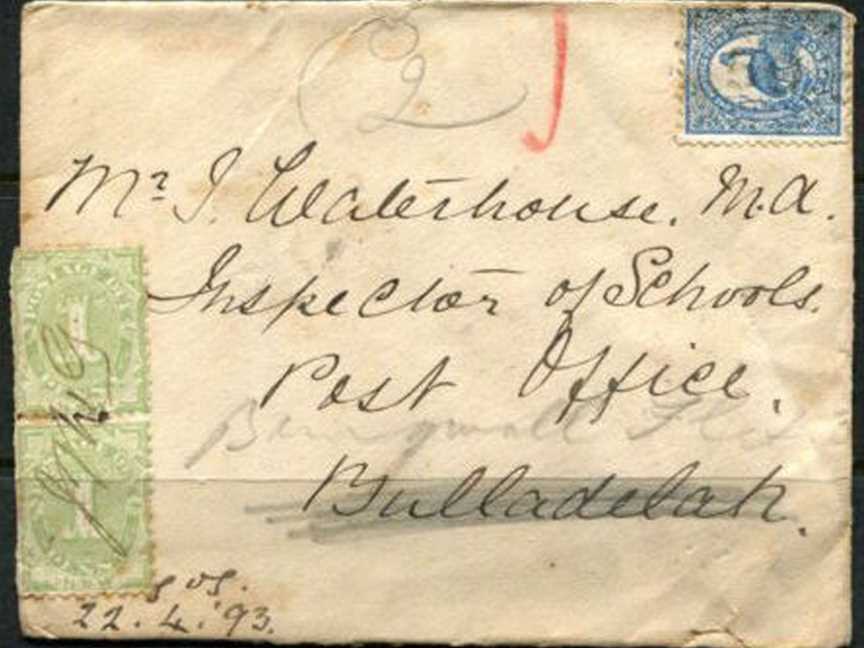 2
Mr J. Waterhouse. M.A.
Inspector of Schools.
Post Office,
Bulladelah.
POSTAGE DUE
1
1
22.4.'93.